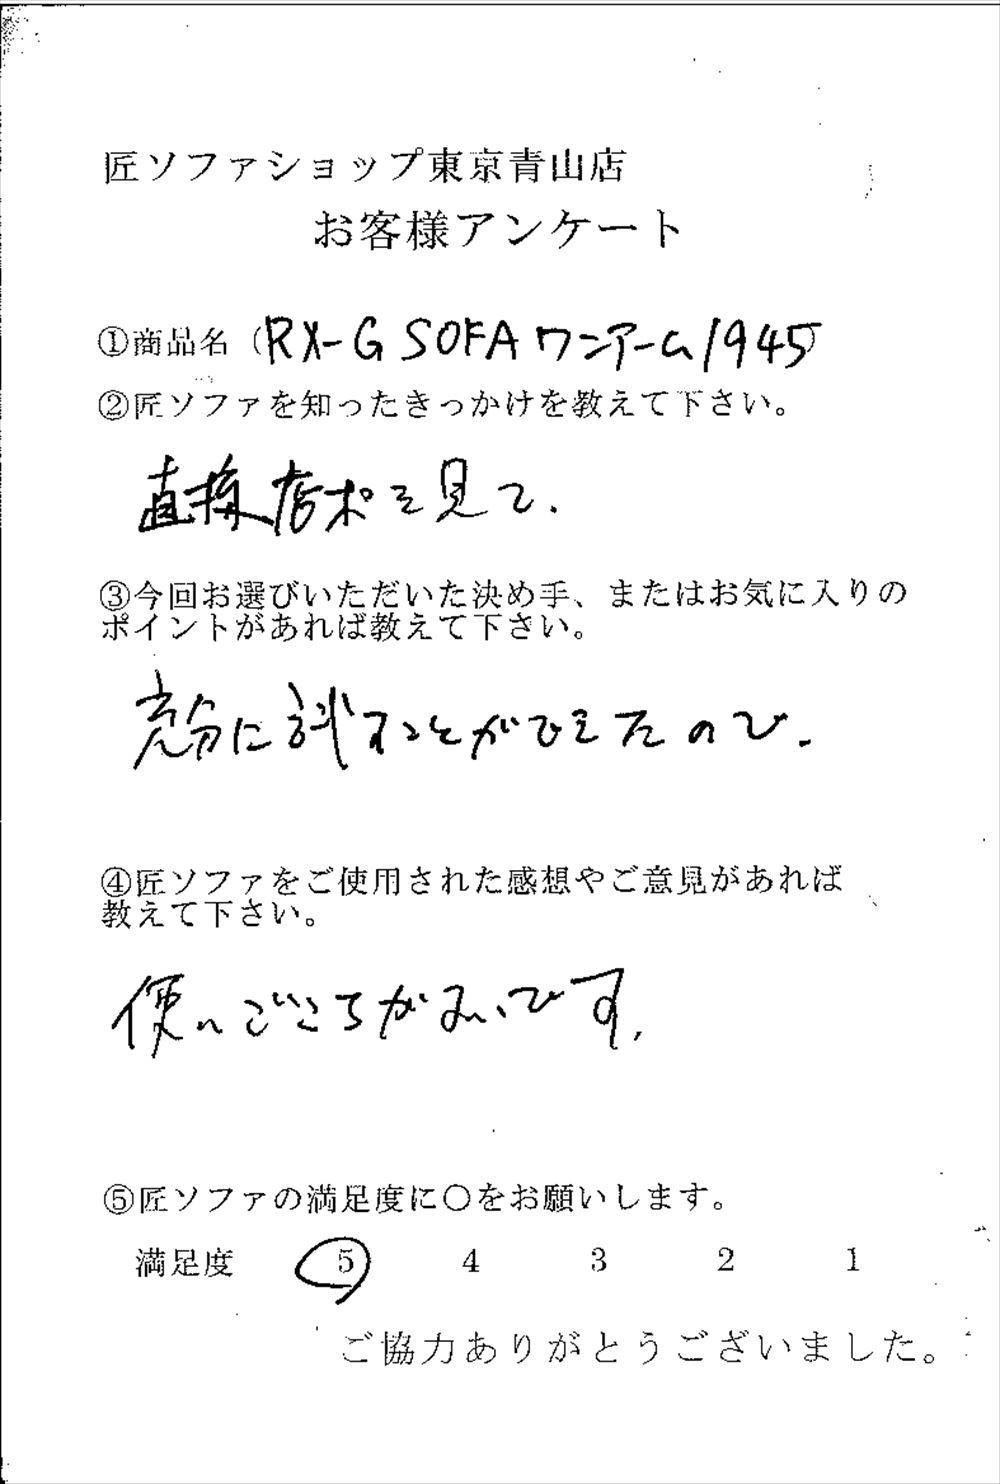 匠ソファショップ東京青山店
お客様アンケート
①商品名（RX-G SOFA ワンアーム1945）
②匠ソファを知ったきっかけを教えて下さい。
直接店舗を見て.
③今回お選びいただいた決め手、またはお気に入りの
ポイントがあれば教えて下さい。
充分に試すことができたので.
④匠ソファをご使用された感想やご意見があれば
教えて下さい。
使いごこちがよいです.
⑤匠ソファの満足度に〇をお願いします。
満足度 5 4 3 2 1
ご協力ありがとうございました。